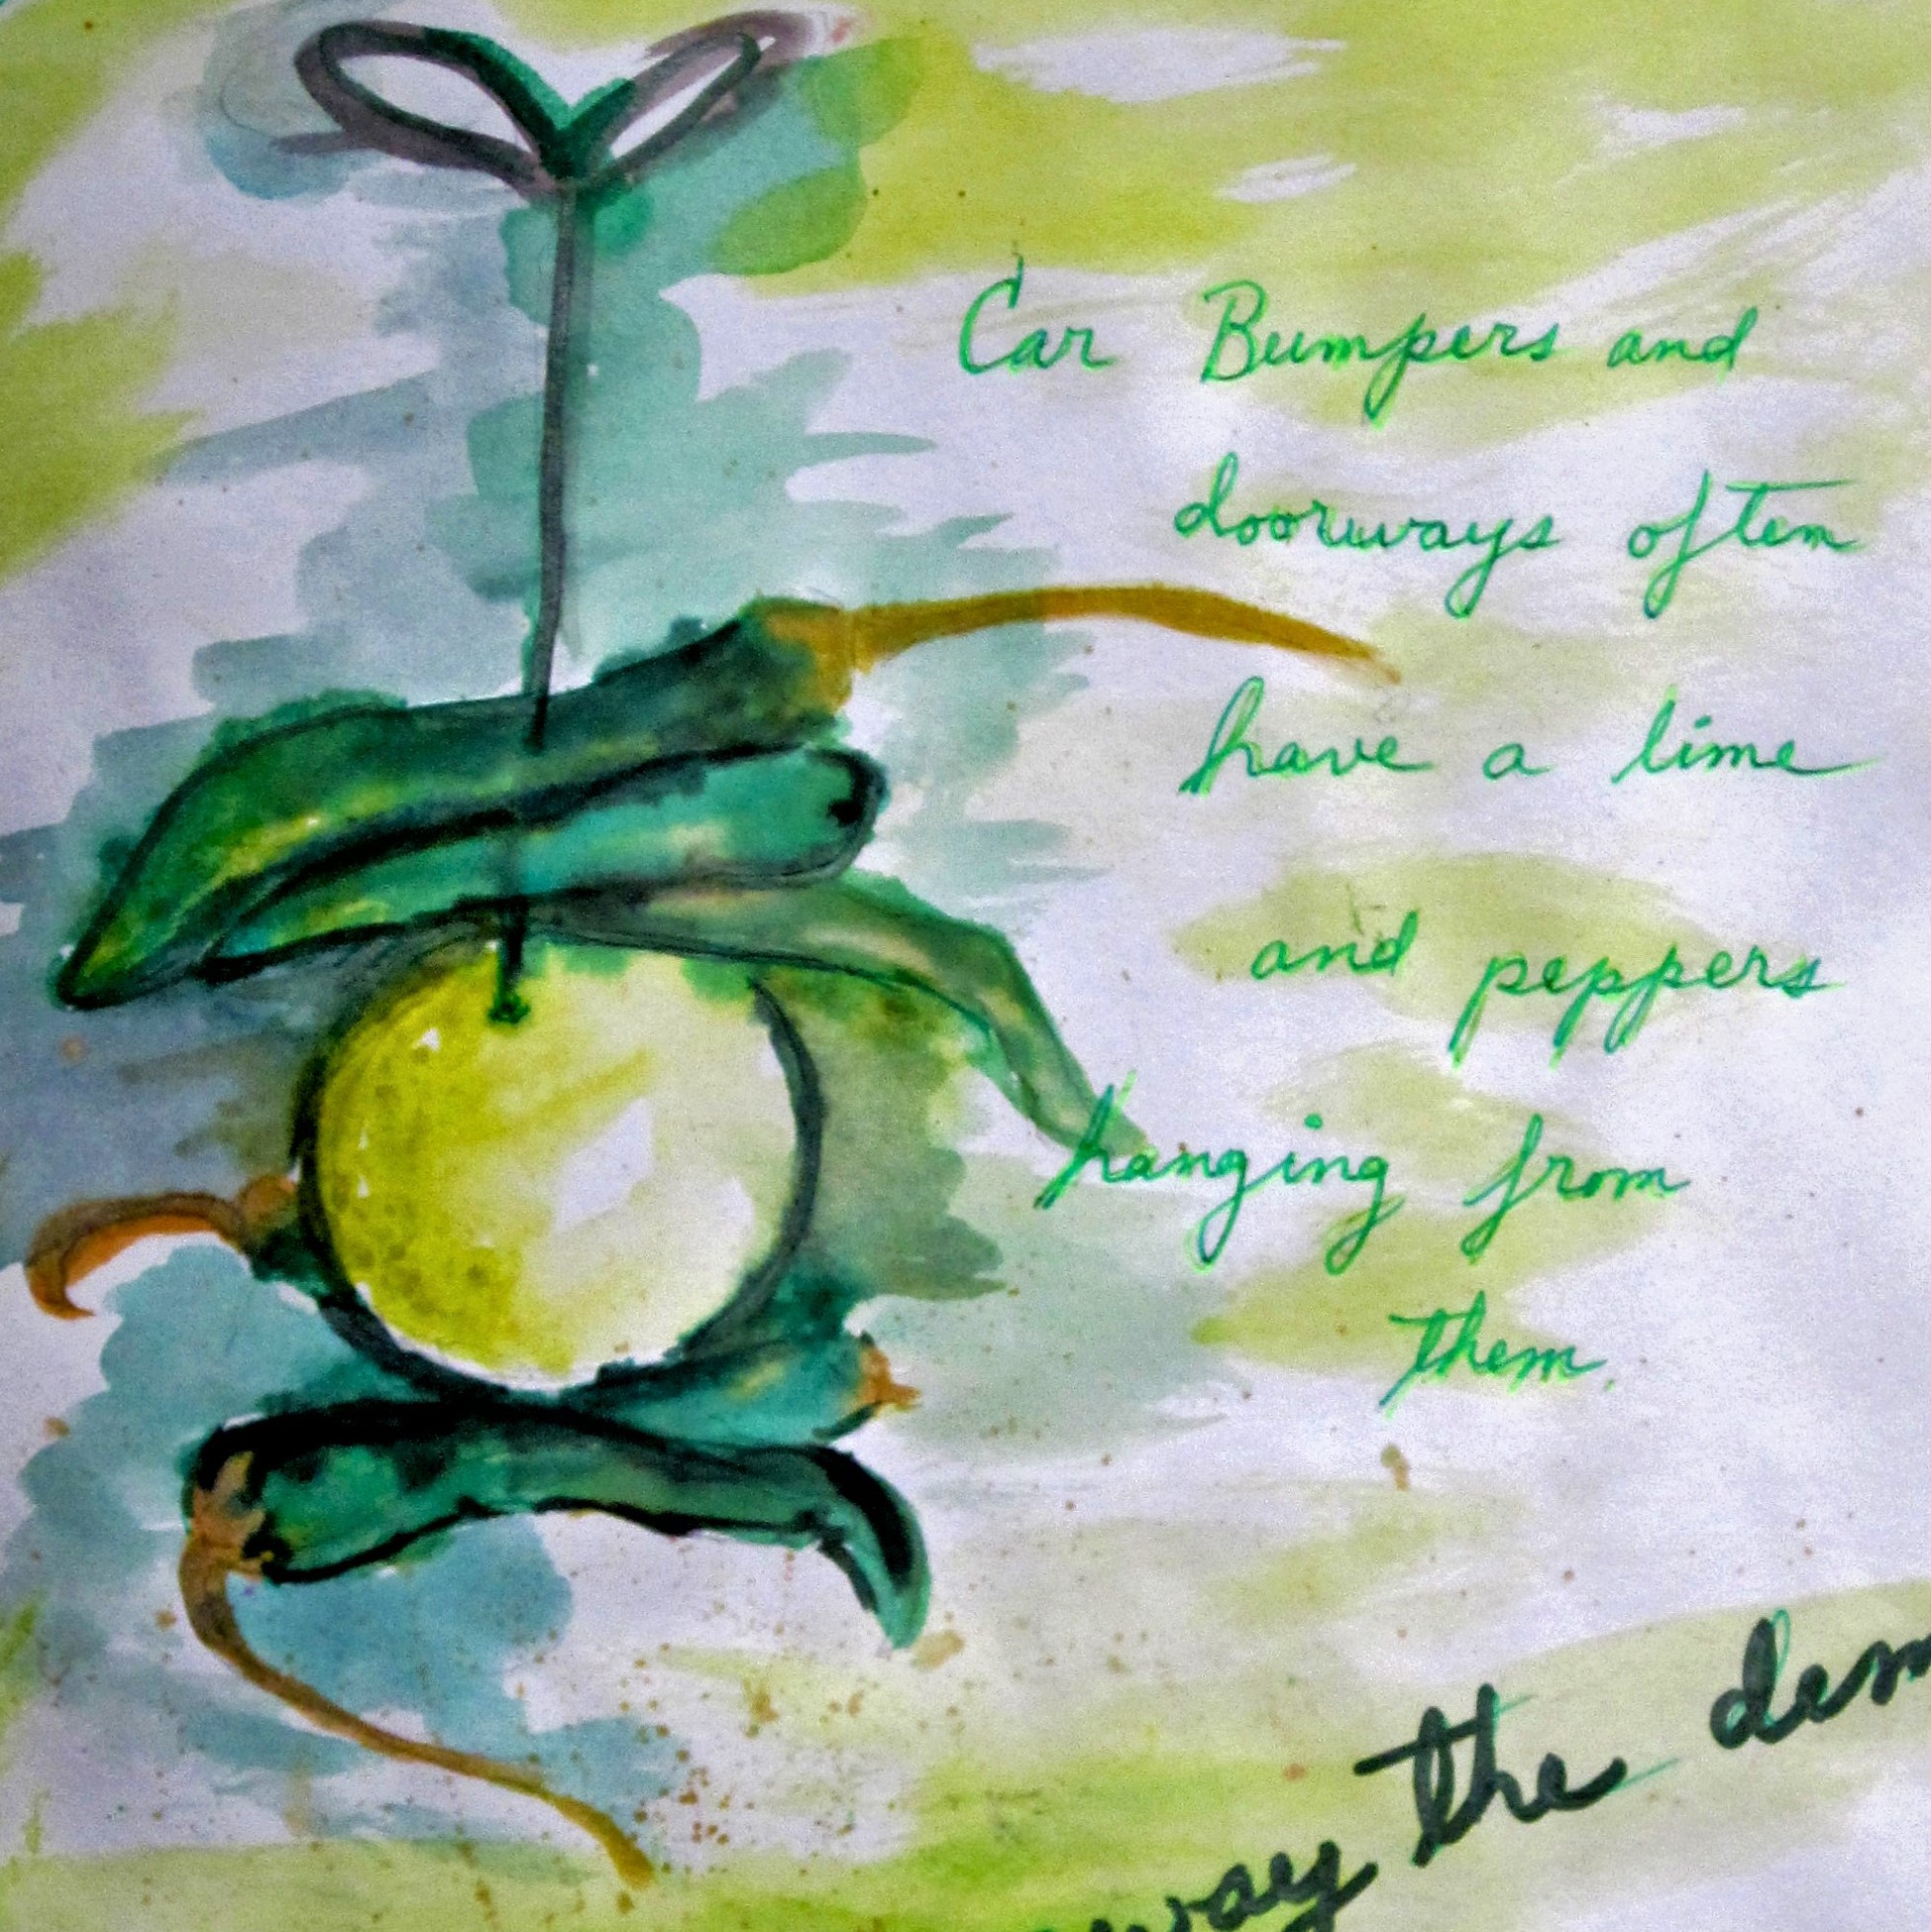 Car Bumpers and
doorways often
have a lime
and peppers
hanging from
them.
the